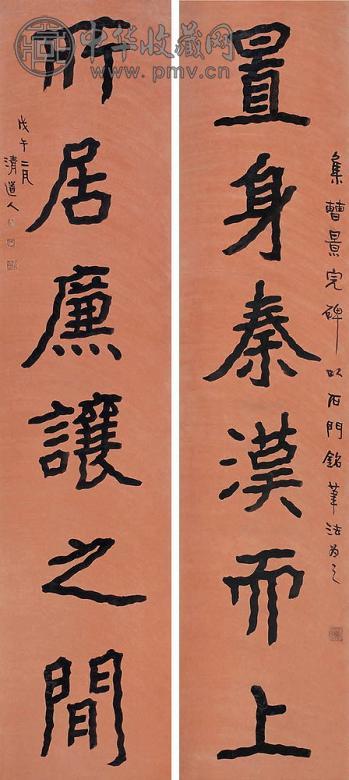 集曹景完碑以石門銘筆法為之
置身秦漢而上
所居廉讓之間
戊午二月
清道人
中华收藏网
www.pmv.cn